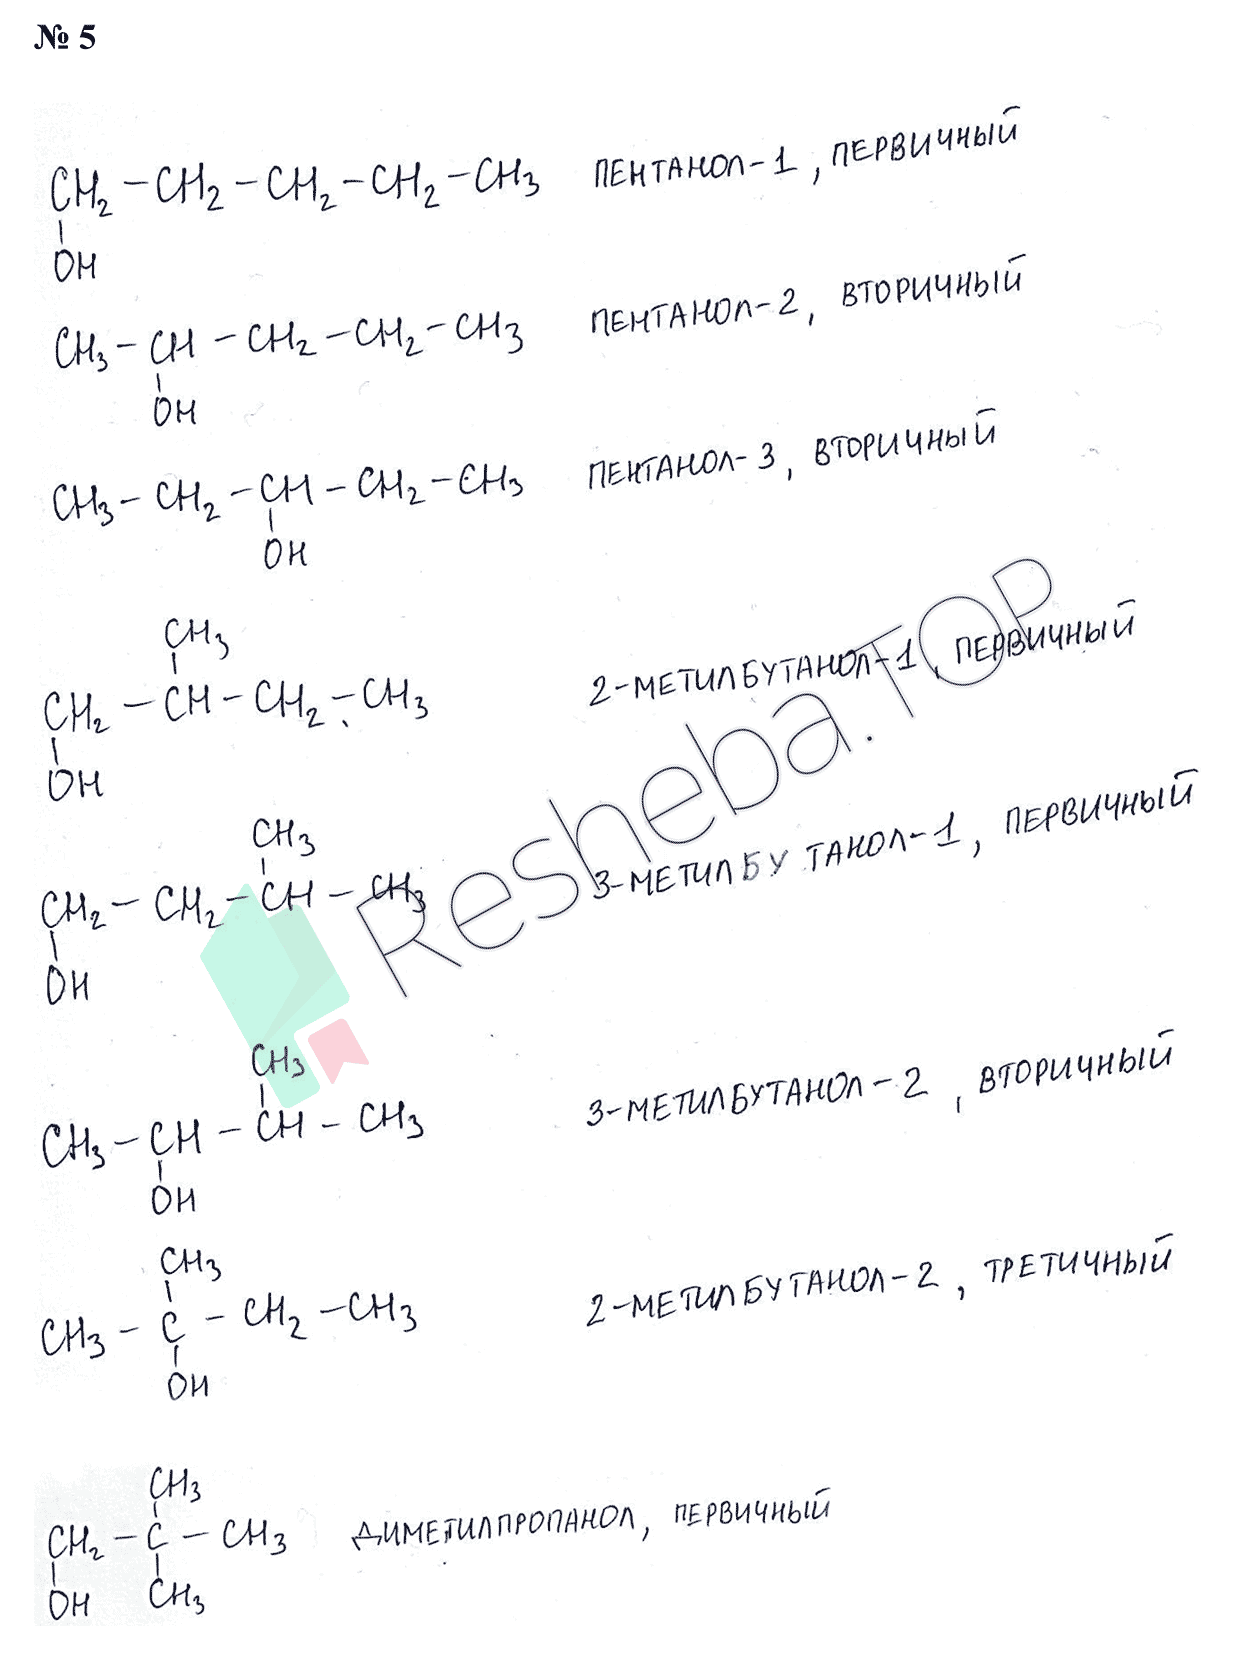 № 5
CH₂ – CH₂ – CH₂ – CH₂ – CH₃ ПЕНТАНОЛ-1, ПЕРВИЧНЫЙ
OH
CH₃ – CH – CH₂ – CH₂ – CH₃ ПЕНТАНОЛ-2, ВТОРИЧНЫЙ
OH
CH₃ – CH₂ – CH – CH₂ – CH₃ ПЕНТАНОЛ-3, ВТОРИЧНЫЙ
OH
CH₃
CH₂ – CH – CH₂ – CH₃ 2-МЕТИЛБУТАНОЛ-1, ПЕРВИЧНЫЙ
OH
CH₃
CH₂ – CH₂ – CH – CH₃ 3-МЕТИЛБУТАНОЛ-1, ПЕРВИЧНЫЙ
OH
Resheba.TOP
CH₃
CH₃ – CH – CH – CH₃ 3-МЕТИЛБУТАНОЛ-2, ВТОРИЧНЫЙ
OH
CH₃
CH₃ – C – CH₂ – CH₃ 2-МЕТИЛБУТАНОЛ-2, ТРЕТИЧНЫЙ
OH
CH₃
CH₂ – C – CH₃ ДИМЕТИЛПРОПАНОЛ, ПЕРВИЧНЫЙ
OH CH₃